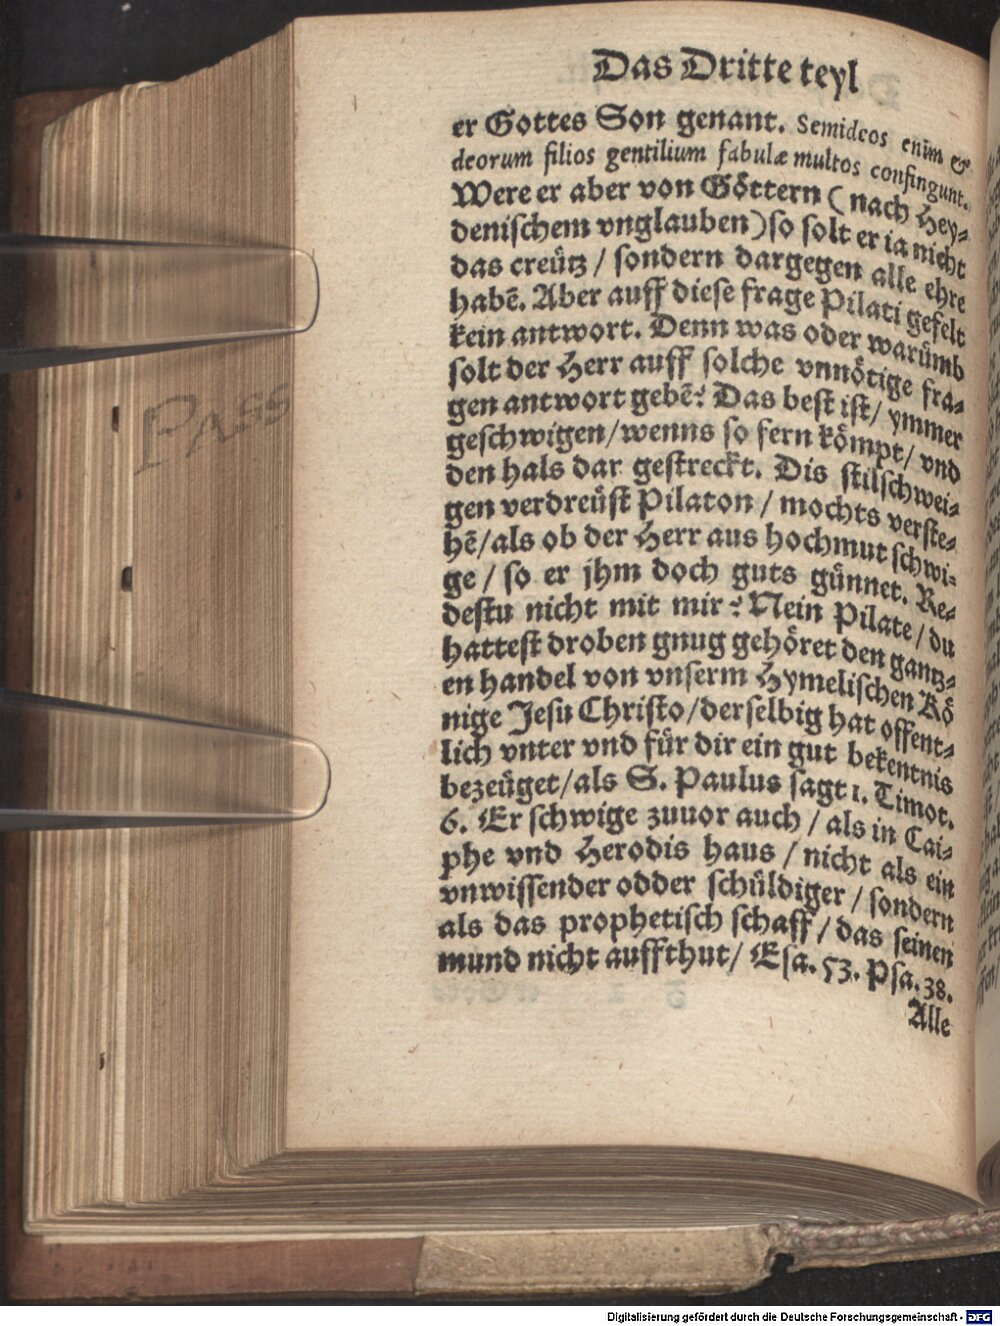 Das Dritte teyl
er Gottes Son genant. Semideos enim &
deorum filios gentilium fabulæ multos confingunt.
Were er aber von Göttern (nach Hey⸗
denischem vnglauben) so solt er ia nicht
das creütz / sondern dargegen alle ehre
habē. Aber auff diese frage Pilati gefelt
kein antwort. Denn was oder warümb
solt der Herr auff solche vnnötige fra⸗
gen antwort gebē? Das best ist / ymmer
geschwigen / wenns so fern kömpt / vnd
den hals dar gestreckt. Dis stilschwei⸗
gen verdreüst Pilaton / mochts verste⸗
hē / als ob der Herr aus hochmut schwi⸗
ge / so er jhm doch guts günnet. Re⸗
destu nicht mit mir? Nein Pilate / du
hattest droben gnug gehöret den gantz⸗
en handel von vnserm Hymelischen Kö
nige Jesu Christo / derselbig hat offent⸗
lich vnter vnd für dir ein gut bekentnis
bezeüget / als S. Paulus sagt 1. Timot.
6. Er schwige zuuor auch / als in Cai⸗
phe vnd Herodis haus / nicht als ein
vnwissender odder schüldiger / sondern
als das prophetisch schaff / das seinen
mund nicht auffthut / Esa. 53. Psa. 38.
Alle
PASS
Digitalisierung gefördert durch die Deutsche Forschungsgemeinschaft - DFG